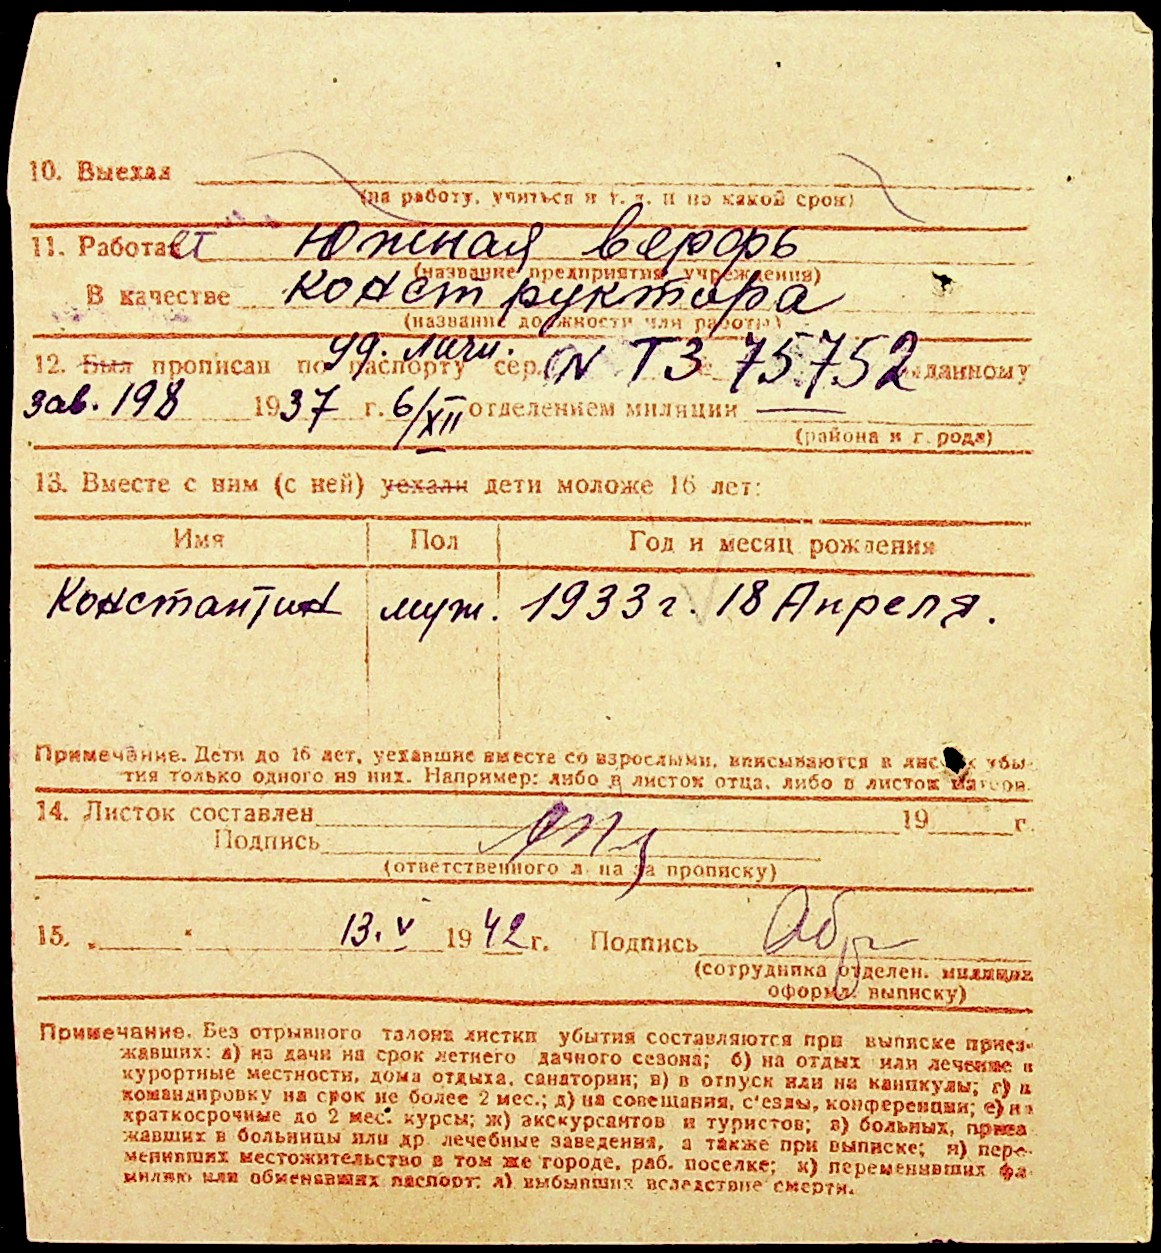 10. Выехал
(на работу, учиться и т. д. и на какой срок)
11. Работает Южная верфь
(название предприятия, учреждения)
В качестве конструктора
(название должности или работы)
уд. личн.
12. Был прописан по паспорту сер. N ТЗ № 75752 выданному
зав. 198 1937 г. 6/XII отделением милиции
(района и города)
13. Вместе с ним (с ней) уехали дети моложе 16 лет:
Имя Пол Год и месяц рождения
Константин муж. 1933 г. 18 Апреля.
Примечание. Дети до 16 лет, уехавшие вместе со взрослыми, вписываются в листок убы-
тия только одного из них. Например: либо в листок отца, либо в листок матери.
14. Листок составлен 19 г.
Подпись
(ответственного л на за прописку)
15. „ “ 13. V 1942 г. Подпись
(сотрудника отделен. милиции
оформл. выписку)
Примечание. Без отрывного талона листки убытия составляются при выписке приез-
жавших: а) на дачи на срок летнего дачного сезона; б) на отдых или лечение в
курортные местности, дома отдыха, санатории; в) в отпуск или на каникулы; г) в
командировку на срок не более 2 мес.; д) на совещания, с'езды, конференции; е) на
краткосрочные до 2 мес. курсы; ж) экскурсантов и туристов; з) больных, приез
жавших в больницы или др лечебные заведения, а также при выписке; и) пере-
менивших местожительство в том же городе, раб. поселке; к) переменивших фа-
милию или обменявших паспорт; л) выбывших вследствие смерти.